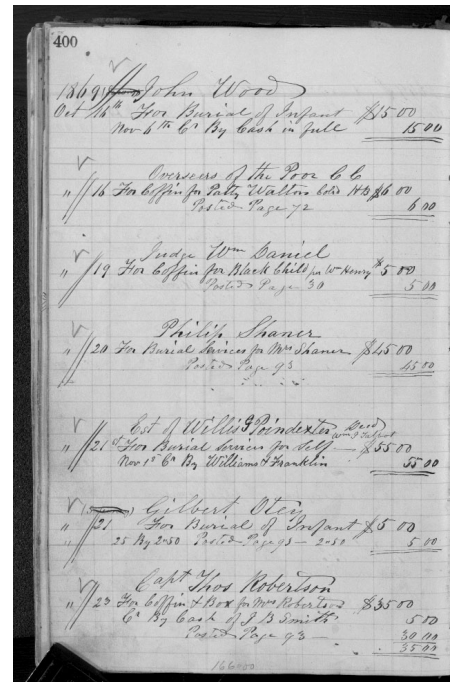 400
1869 John Wood
Oct 16th For Burial of Infant $15 00
Nov 6th Cr By Cash in full 15 00
Overseers of the Poor C C
" 16 For Coffin for Patty Walton Cold $6 00
Posted Page 72 6 00
Judge Wm Daniel
" 19 For Coffin for Black Child for Wm Henry $5 00
Posted Page 30 5 00
Philip Shaner
" 20 For Burial Services for Mrs Shaner $45 00
Posted Page 93 45 00
Est of Willis Poindexter Decd
" 21st For Burial Services for Self — $55 00
Nov 1st Cr By Williams & Franklin 55 00
Gilbert Otey
" 21 For Burial of Infant $5 00
" 25 By 2-50 Posted Page 93 - 2-50 5 00
Capt Thos Robertson
" 23 For Coffin & Box for Mrs Robertson $35 00
Cr By Cash of J B Smith 5 00
Posted Page 93 — 30 00
35 00
166000